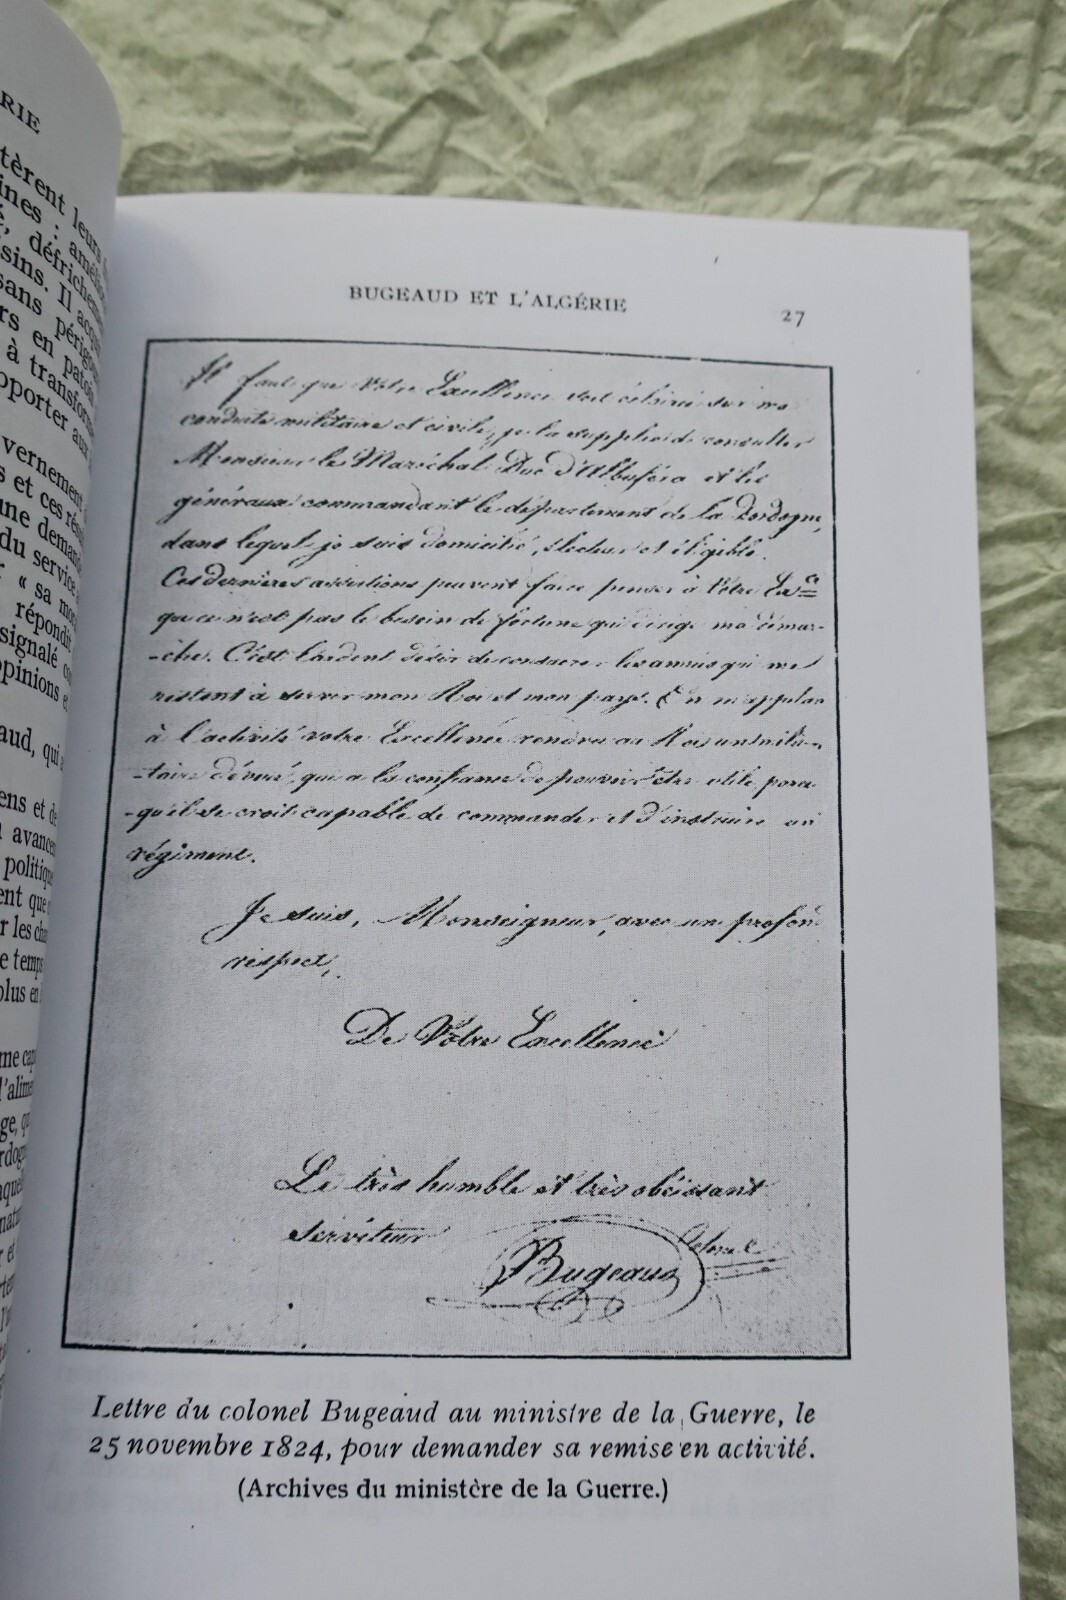 RIE
tèrent leurs
ines : amélio
é, défrichement
sins. Il acqu
sans périgou
rs en patois
à transform
pporter aux
vernement
s et ces rés
une demand
du service
« sa mon
répondit
signalé co
opinions e
aud, qui a
ens et de
avancem
politique
ent que
r les cha
e temps
plus en
me cap
l'alime
ge, qu
rdogn
aquel
natu
r et
BUGEAUD ET L'ALGÉRIE
27
Il faut que Votre Excellence soit éclairé sur ma
conduite militaire et civile, je la supplie de consulter
Monsieur le Maréchal Duc d'Albuféra et les
généraux commandant le département de la Dordogne,
dans lequel je suis domicilié, électeur et éligible.
Ces dernières assertions peuvent faire penser à Votre Exce
que ce n'est pas le besoin de fortune qui dirige ma démar-
-che. C'est l'ardent désir de consacrer les années qui me
restent à servir mon Roi et mon pays. En m'appelant
à l'activité votre Excellence rendra au Roi un mili-
-taire dévoué, qui a la confiance de pouvoir être utile, parce
-qu'il se croit capable de commander et d'instruire un
régiment.
Je suis, Monseigneur, avec un profond
respect,
De Votre Excellence
Le très humble et très obéissant
serviteur
Colonel
Bugeaud
Lettre du colonel Bugeaud au ministre de la Guerre, le
25 novembre 1824, pour demander sa remise en activité.
(Archives du ministère de la Guerre.)